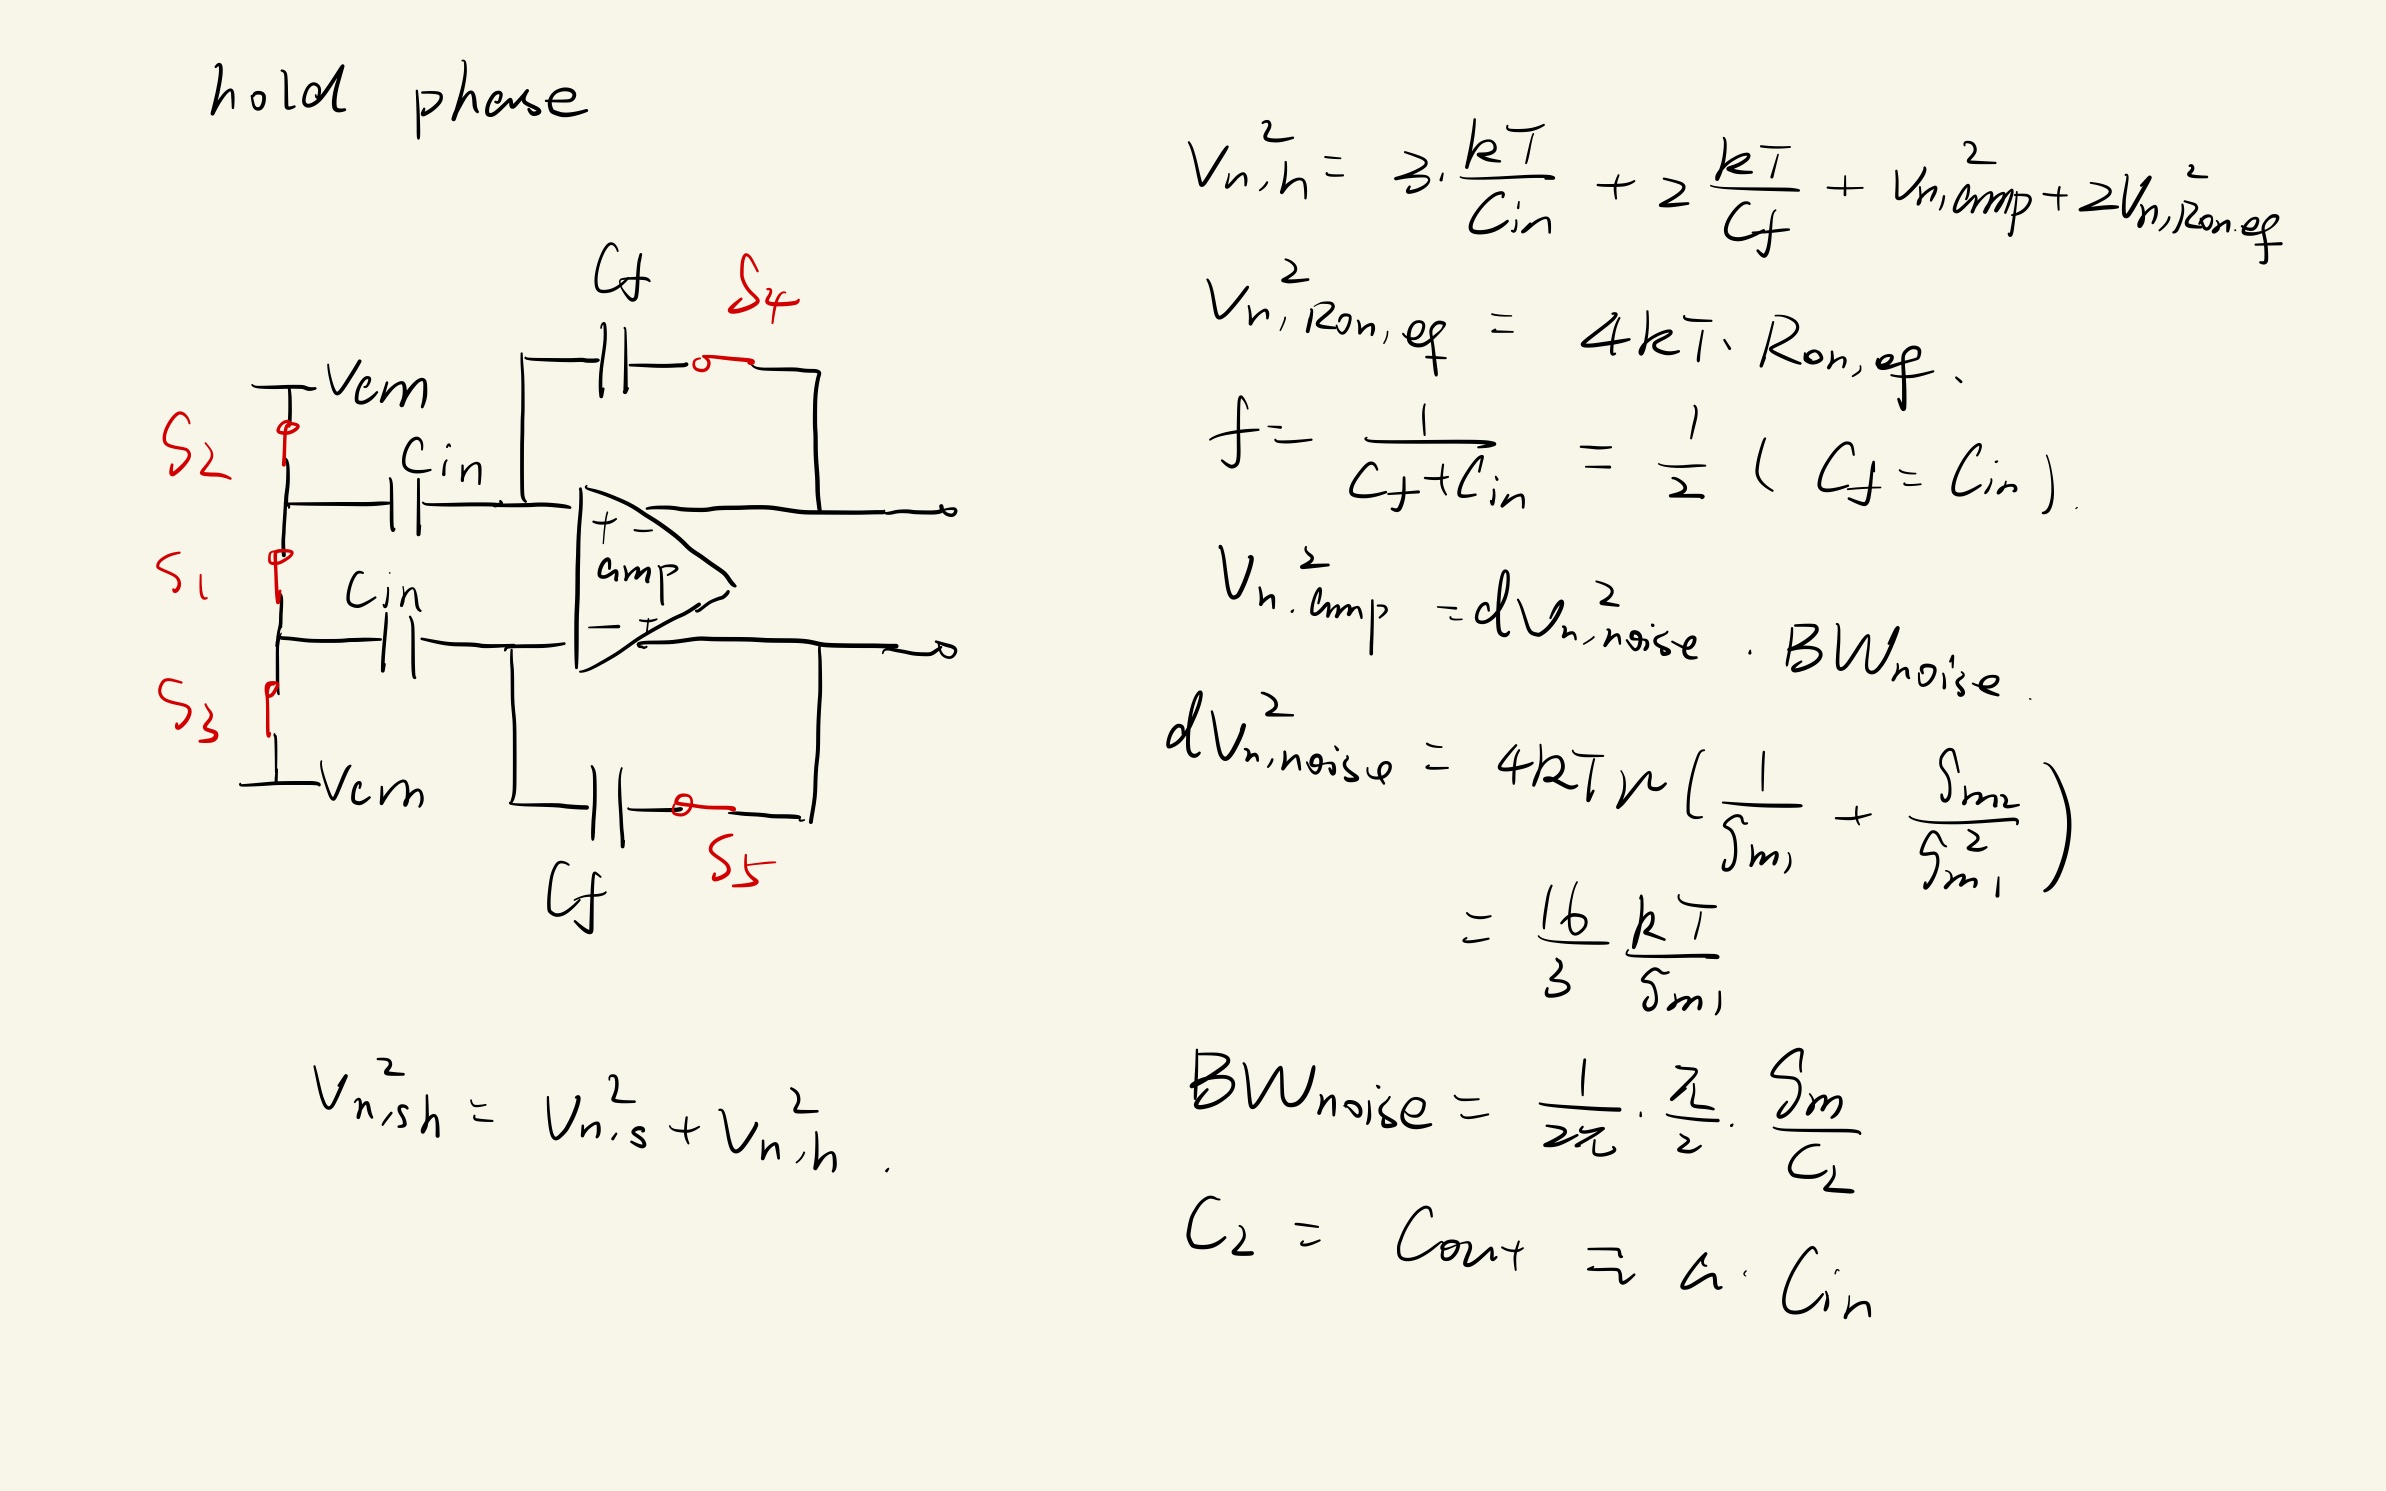 hold phase
Cf
S4
Vcm
S2
Cin
+ -
S1
amp
Cin
- +
S3
Vcm
S5
Cf
Vn,sh² = Vn,s² + Vn,h² .
Vn,h² = 3·kT/Cin + 2 kT/Cf + Vn,amp² + 2Vn,Ron,eq²
Vn,Ron,eq² = 4kT·Ron,eq.
f = 1/(Cf+Cin) = 1/2 (Cf = Cin).
Vn,amp² = dVn,noise² · BWnoise.
dVn,noise² = 4kTr(1/gm1 + gm2/gm1²)
= 16/3 kT/gm1
BWnoise = 1/2π · π/2 · gm/C2
C2 = Cout = a · Cin